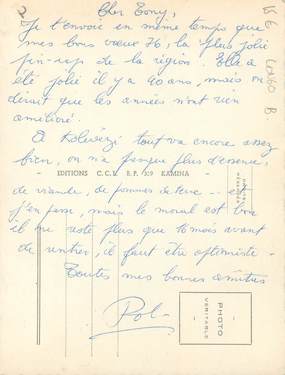 Cher Tony,
Je t'envoie en même temps que
mes bons vœux 76, la plus jolie
pin-up de la région. Elle a
été jolie il y a 90 ans, mais on
dirait que les années n'ont rien
amélioré.
A Kolwézi tout va encore assez
bien, on n'a presque plus d'essence,
EDITIONS C.C.E. B.P. 309 KAMINA
de viande, de pommes de terre --
j'en passe, mais le moral est bon
il ne reste plus que 10 mois avant
de rentrer, il faut être optimiste -
Toutes mes bonnes amitiés
Pol -
PHOTO
VERITABLE
CONGO B.